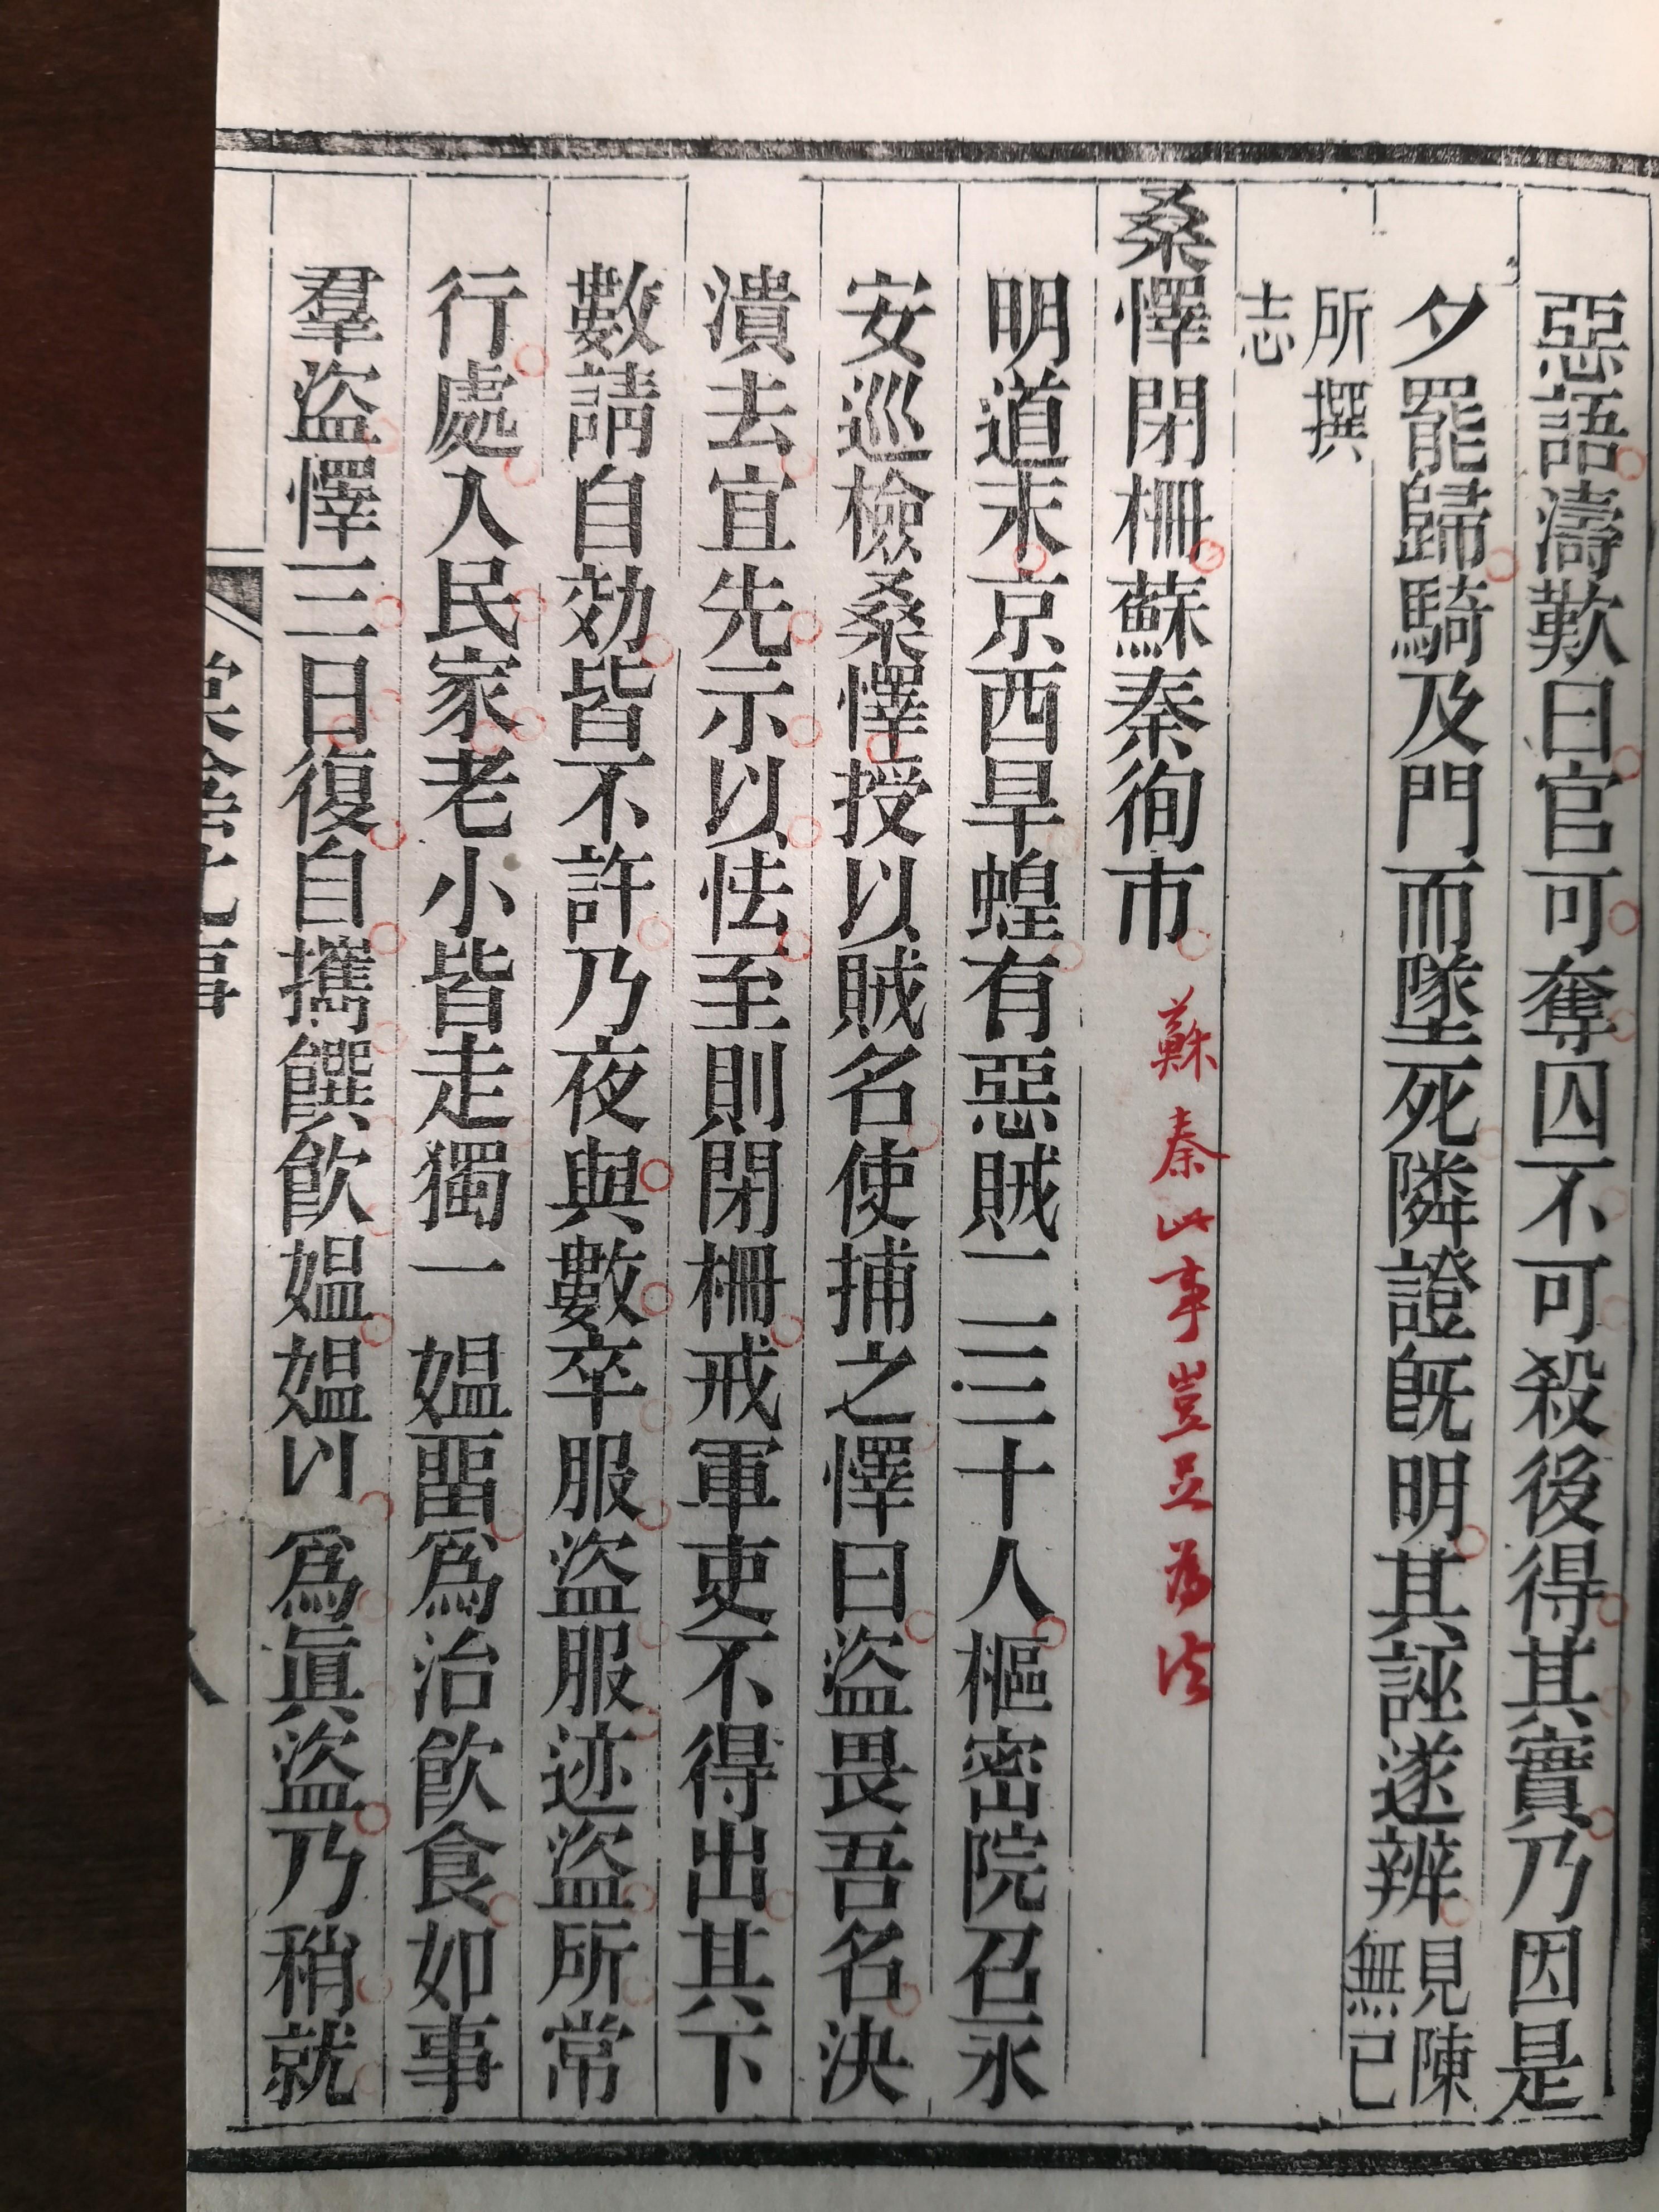 惡語濤歎曰官可奪囚不可殺後得其實乃因是
夕罷歸騎及門而墜死隣證旣明其誣遂辨見陳無已
所撰
志
桑懌閉柵蘇秦徇市
蘇秦此事豈足為法
明道末京西旱蝗有惡賊二十三人樞密院召永
安巡檢桑懌授以賊名使捕之懌曰盜畏吾名決
潰去宜先示以怯至則閉柵戒軍吏不得出其下
數請自効皆不許乃夜與數卒服盜服迹盜所常
行處入民家老小皆走獨一媼畱爲治飲食如事
羣盜懌三日復自攜饌飲媼媼以爲眞盜乃稍就
棠陰比事
八